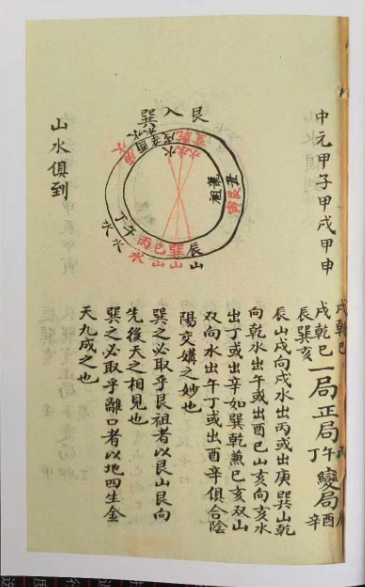 中元甲子甲戌甲申
戌乾巳
辰巽亥
一局正局
午丁
變局
酉辛
辰山戌向戌水出丙或出庚巽山乾
向乾水出午或出酉巳山亥向亥水
出丁或出辛如巽乾兼巳亥双山
双向水出午丁或出酉辛俱合陰
陽交媾之妙也
巽之必取乎艮祖者以艮山艮向
先後天之相見也
巽之必取乎離口者以地四生金
天九成之也
艮入巽
山水俱到
丑艮寅
辰山
巽山
巳山
丙水
午水
丁水